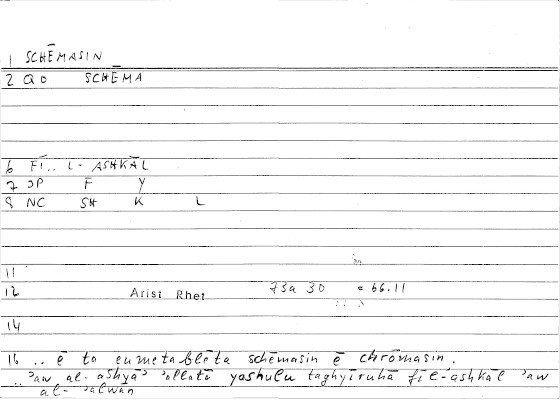 1 SCHĒMASIN
2 QO SCHĒMA
6 FĪ.. L- ASHKĀL
7 JP F Y
8 NC SH K L
11
12 Arist Rhet 73a 30 = 66.11
14
16 .. ē ta eumetablēta schēmasin ē chrōmasin.
.. ʾaw al-ashyāʾ ʾallatī yashulu taghyīruhā fī l-ʾashkāl ʾaw
al-ʾalwān